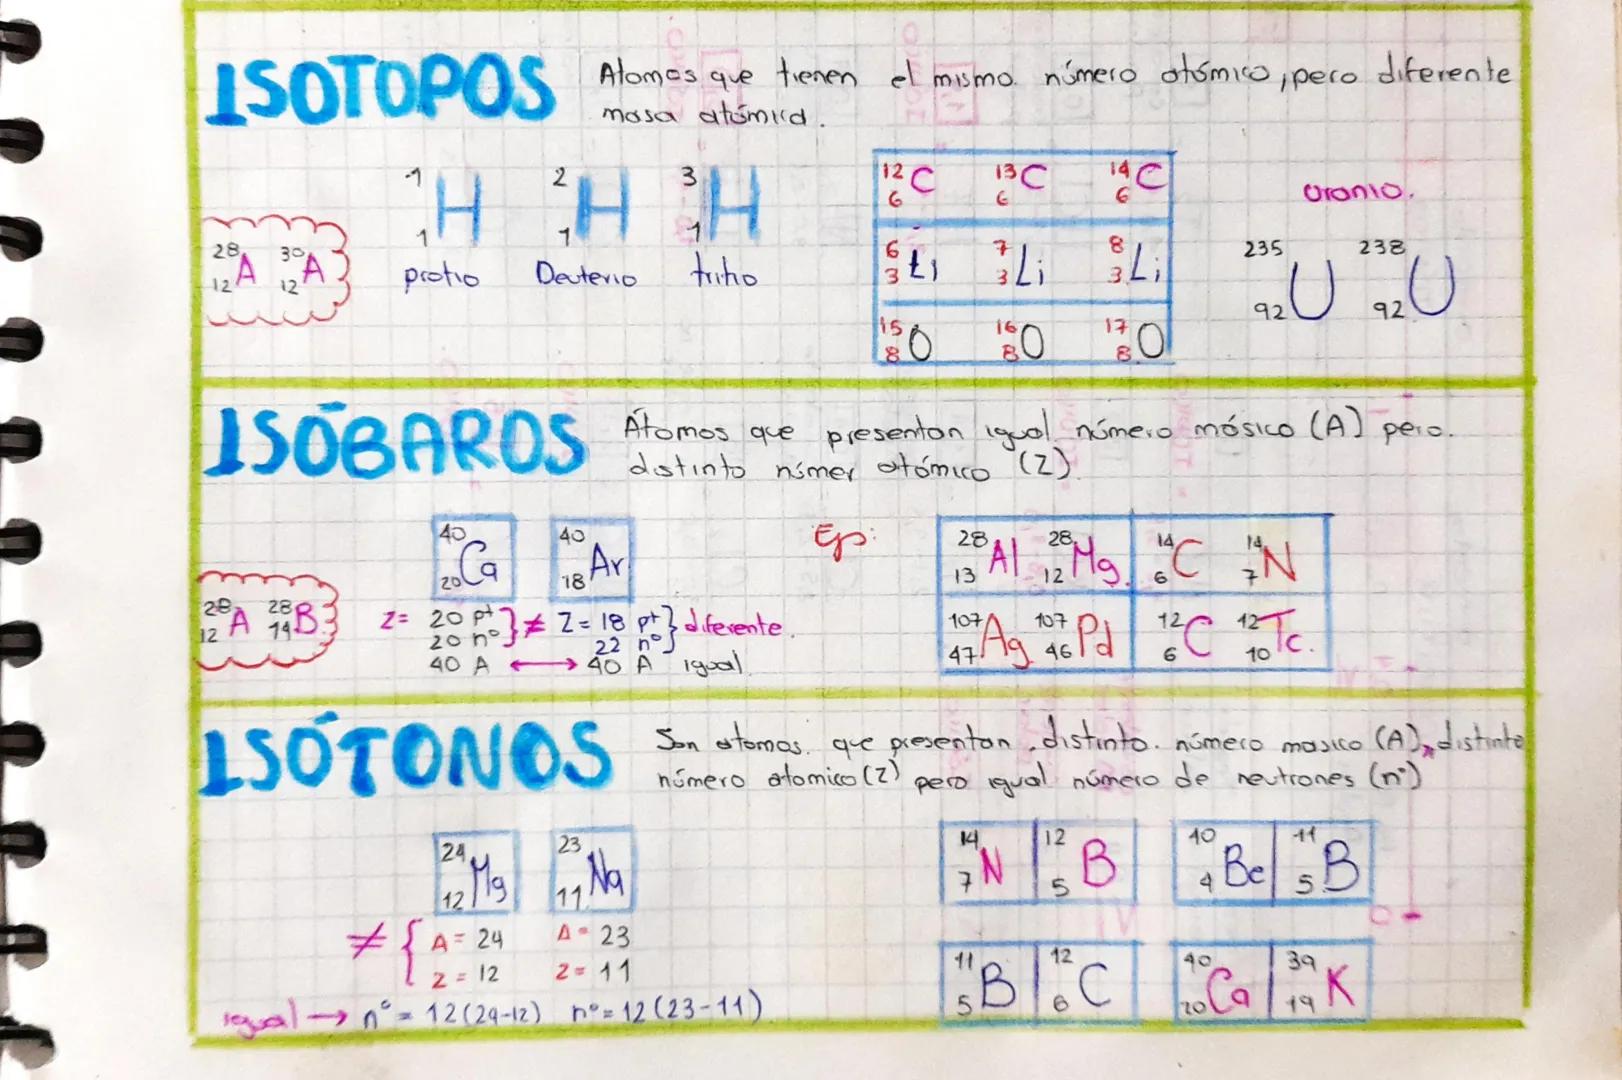 ISOTOPOS
Atomos que tienen el mismo número atómico, pero diferente
masa atómica.
28 12 A 30 12 A
1 1 H 2 1 H 3 1 H
protio Deuterio tritio
12 6 C 13 6 C 14 6 C
6 3 Li 7 3 Li 8 3 Li
15 8 O 16 8 O 17 8 O
uranio.
235 92 U 238 92 U
ISÓBAROS
Átomos que presentan igual número másico (A) pero.
distinto númer atómico (Z).
28 12 A 28 14 B
40 20 Ca 40 18 Ar
Z= 20 pt } ≠ Z= 18 pt } diferente.
20 nº 22 nº
40 A ⟷ 40 A igual
Ej:
28 13 Al 28 12 Mg 14 6 C 14 7 N
107 47 Ag 107 46 Pd 12 6 C 12 10 Tc.
ISÓTONOS
Son atomos. que presentan, distinto. número masico (A), distinto
número atomico (Z) pero igual número de neutrones (nº)
24 12 Mg 23 11 Na
≠ { A= 24 A= 23
Z= 12 Z= 11
igual → nº= 12 (24-12) nº= 12 (23-11)
14 7 N 12 5 B 10 4 Be 11 5 B
11 5 B 12 6 C 40 20 Ca 39 19 K